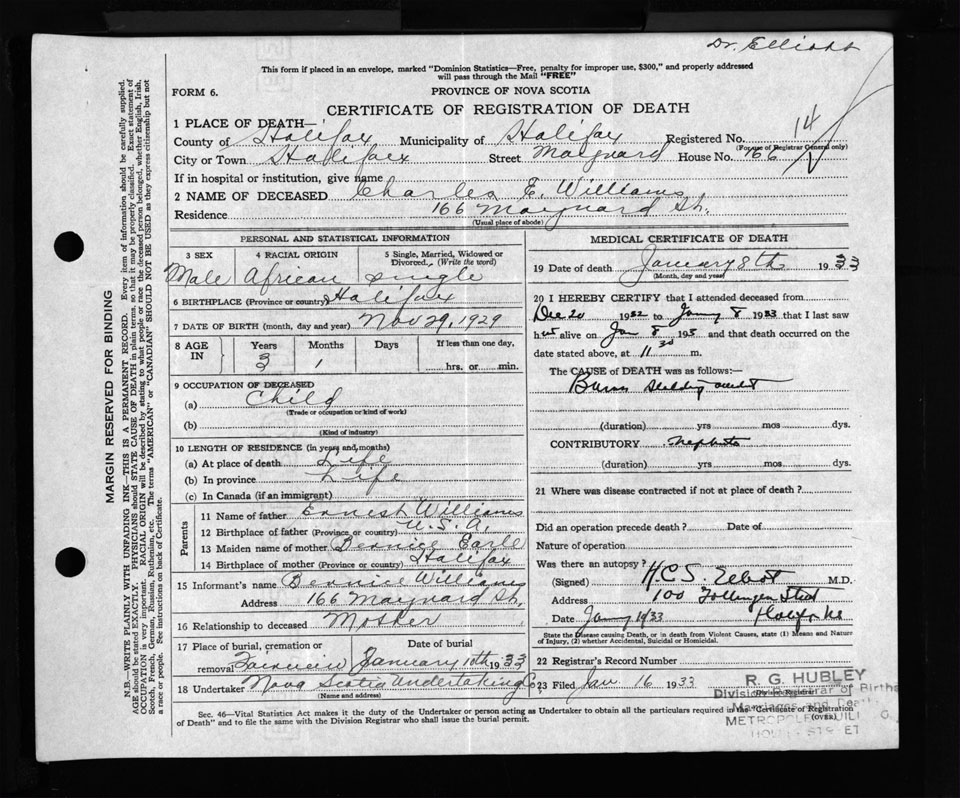 Dr. Elliott
This form if placed in an envelope, marked "Dominion Statistics—Free, penalty for improper use, $300," and properly addressed
will pass through the Mail "FREE"
FORM 6.
PROVINCE OF NOVA SCOTIA
CERTIFICATE OF REGISTRATION OF DEATH
1 PLACE OF DEATH—
County of Halifax Municipality of Halifax Registered No. 14
(For use of Registrar General only)
City or Town Halifax Street Maynard House No. 166
If in hospital or institution, give name
2 NAME OF DECEASED Charles E. Williams
Residence 166 Maynard St.
(Usual place of abode)
PERSONAL AND STATISTICAL INFORMATION
3 SEX 4 RACIAL ORIGIN 5 Single, Married, Widowed or Divorced.. (Write the word)
Male African single
6 BIRTHPLACE (Province or country) Halifax
7 DATE OF BIRTH (month, day and year) Nov 29, 1929
8 AGE IN Years Months Days If less than one day,
3 1 hrs. or min.
9 OCCUPATION OF DECEASED
(a) Child
(Trade or occupation or kind of work)
(b)
(Kind of industry)
10 LENGTH OF RESIDENCE (in years and months)
(a) At place of death Life
(b) In province Life
(c) In Canada (if an immigrant)
Parents
11 Name of father Ernest Williams
12 Birthplace of father (Province or country) U.S.A.
13 Maiden name of mother Bernice Earle
14 Birthplace of mother (Province or country) Halifax
15 Informant's name Bernice Williams
Address 166 Maynard St.
16 Relationship to deceased Mother
17 Place of burial, cremation or Date of burial
removal Fairview January 10th 1933
18 Undertaker Nova Scotia Undertaking Co
(Name and address)
MEDICAL CERTIFICATE OF DEATH
19 Date of death January 8th 1933
(Month, day and year)
20 I HEREBY CERTIFY that I attended deceased from
Dec 20 1932 to Jany 8 1933 that I last saw
h alive on Jan 8 193 and that death occurred on
date stated above, at 11 30 m.
The CAUSE of DEATH was as follows:—
Burns
(duration) yrs mos dys.
CONTRIBUTORY
(duration) yrs mos dys.
21 Where was disease contracted if not at place of death?
Did an operation precede death? Date of
Nature of operation
Was there an autopsy?
(Signed) M.D.
Address 100 Street
Date Jany 1933
State the Disease causing Death, or in death from Violent Causes, state (1) Means and Nature
of Injury, (2) whether Accidental, Suicidal or Homicidal.
22 Registrar's Record Number
23 Filed Jan 16 1933
R. G. HUBLEY
Division Registrar of Births
Marriages and Deaths
(Division Registrar)
Sec. 46—Vital Statistics Act makes it the duty of the Undertaker or person acting as Undertaker to obtain all the particulars required in the "Certificate of Registration
of Death" and to file the same with the Division Registrar who shall issue the burial permit.
(OVER)
MARGIN RESERVED FOR BINDING
N.B.—WRITE PLAINLY WITH UNFADING INK—THIS IS A PERMANENT RECORD. Every item of information should be carefully supplied.
AGE should be stated EXACTLY. PHYSICIANS should STATE CAUSE OF DEATH in plain terms, so that it may be properly classified. Exact statement of
OCCUPATION is very important. RACIAL ORIGIN will be described by stating to what people or race the deceased person belonged, whether English, Irish,
Scotch, French, German, Russian, Ruthenian, etc. The terms "AMERICAN" or "CANADIAN" SHOULD NOT BE USED as they express citizenship but not
a race or people. See instructions on back of Certificate.